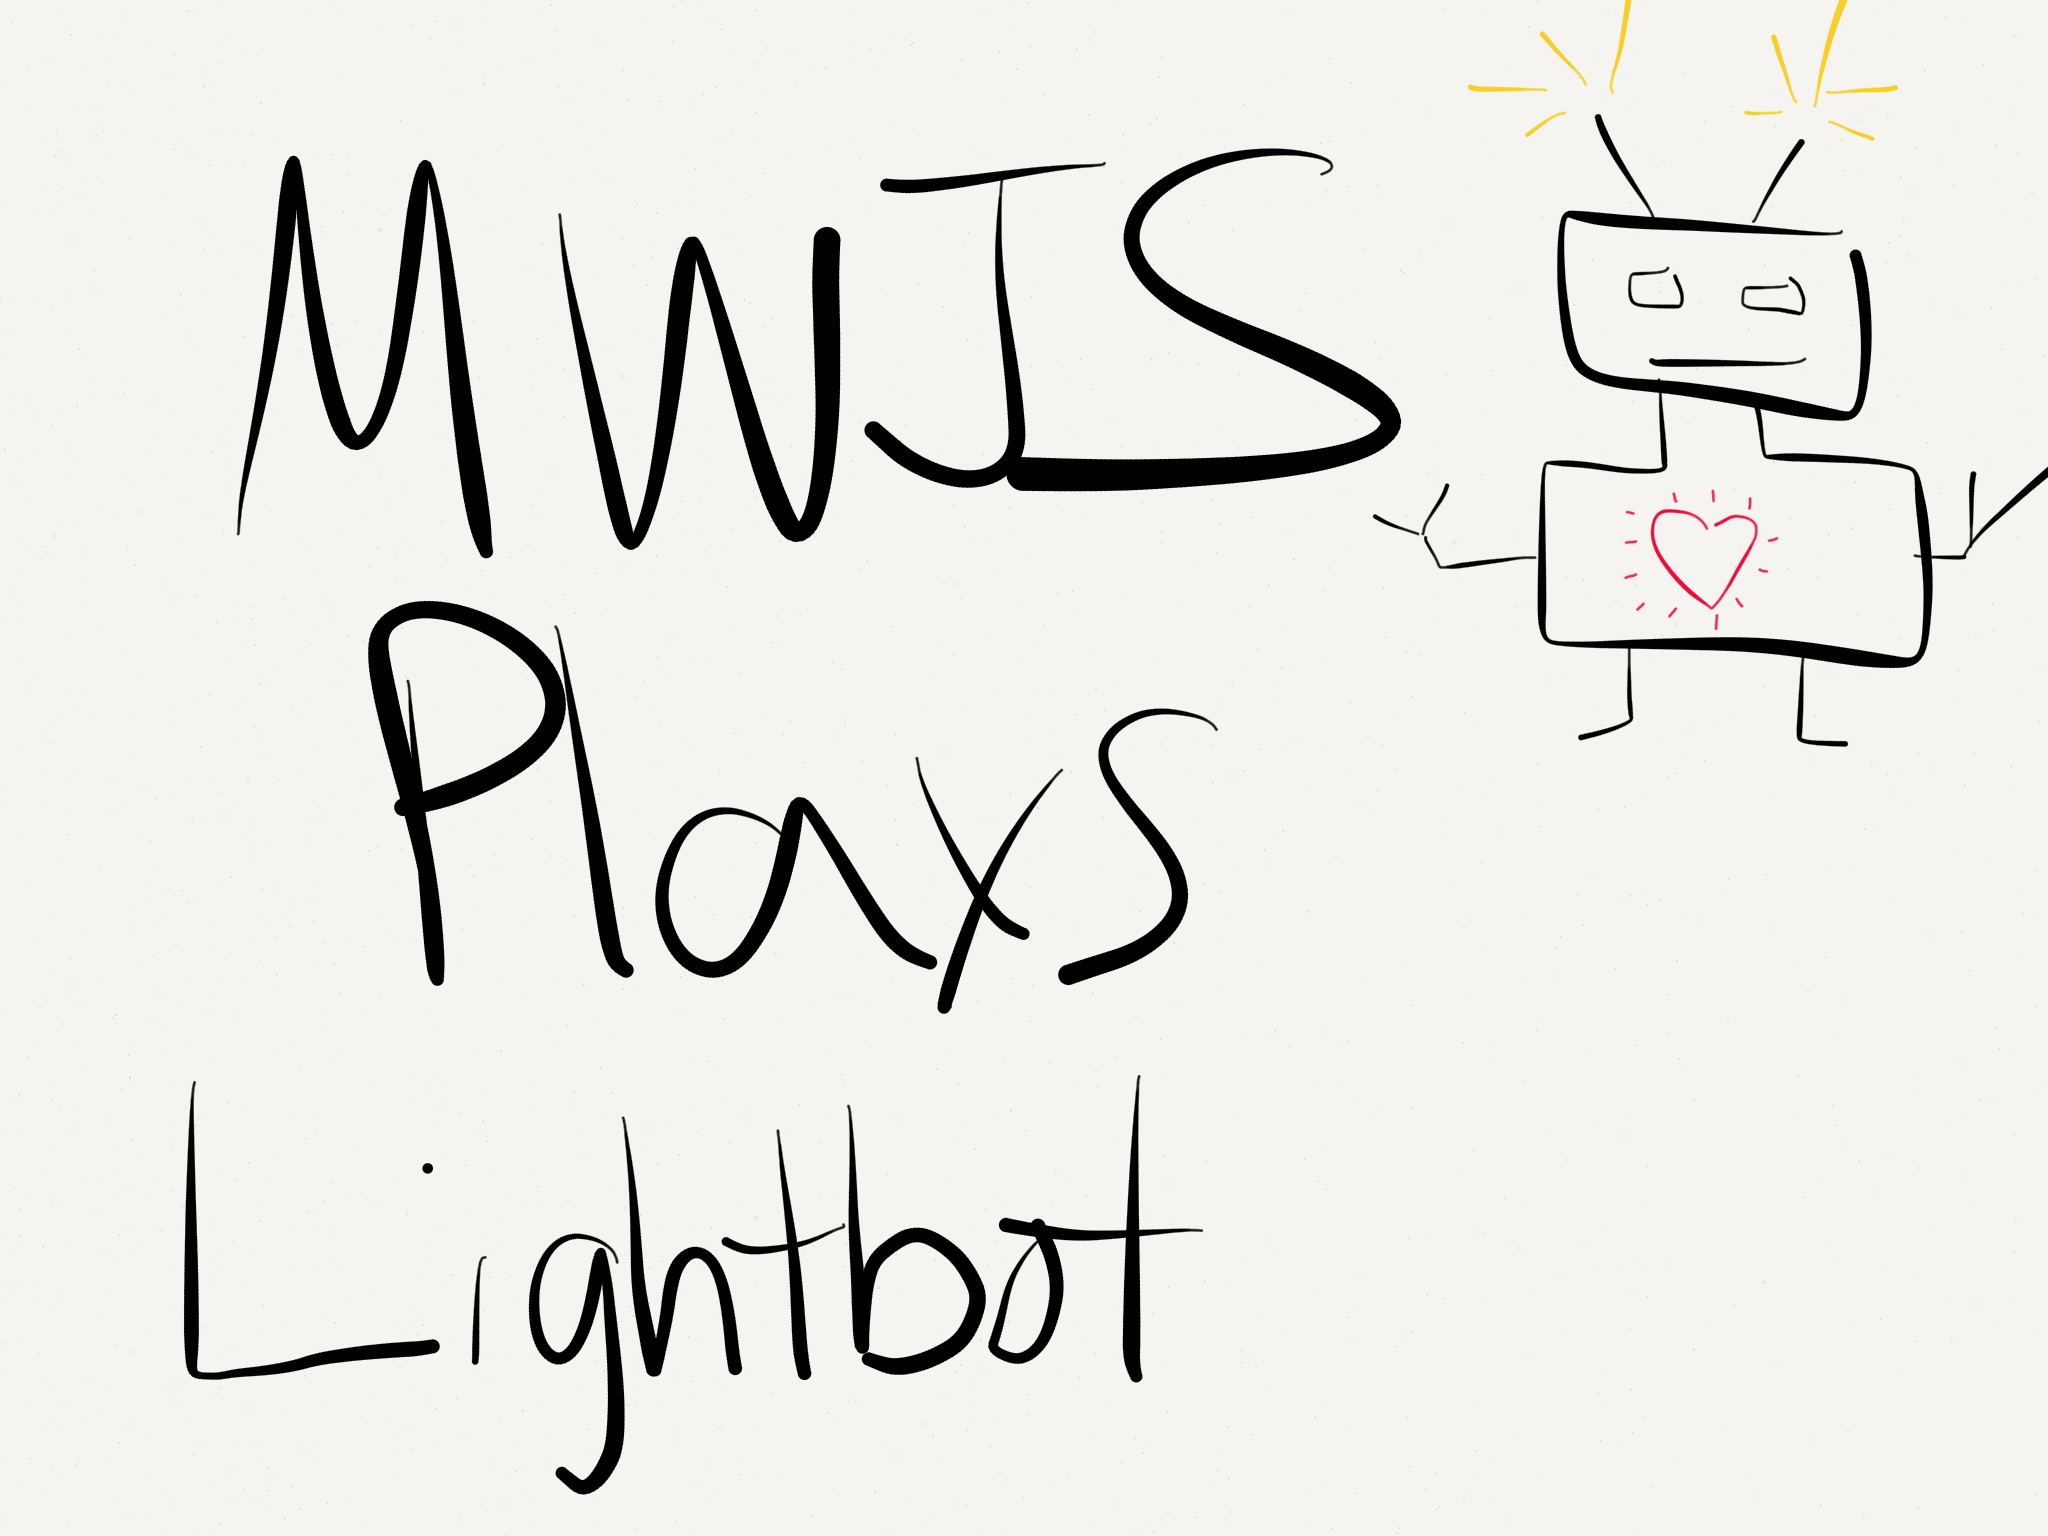 MWJS
Plays
Lightbot